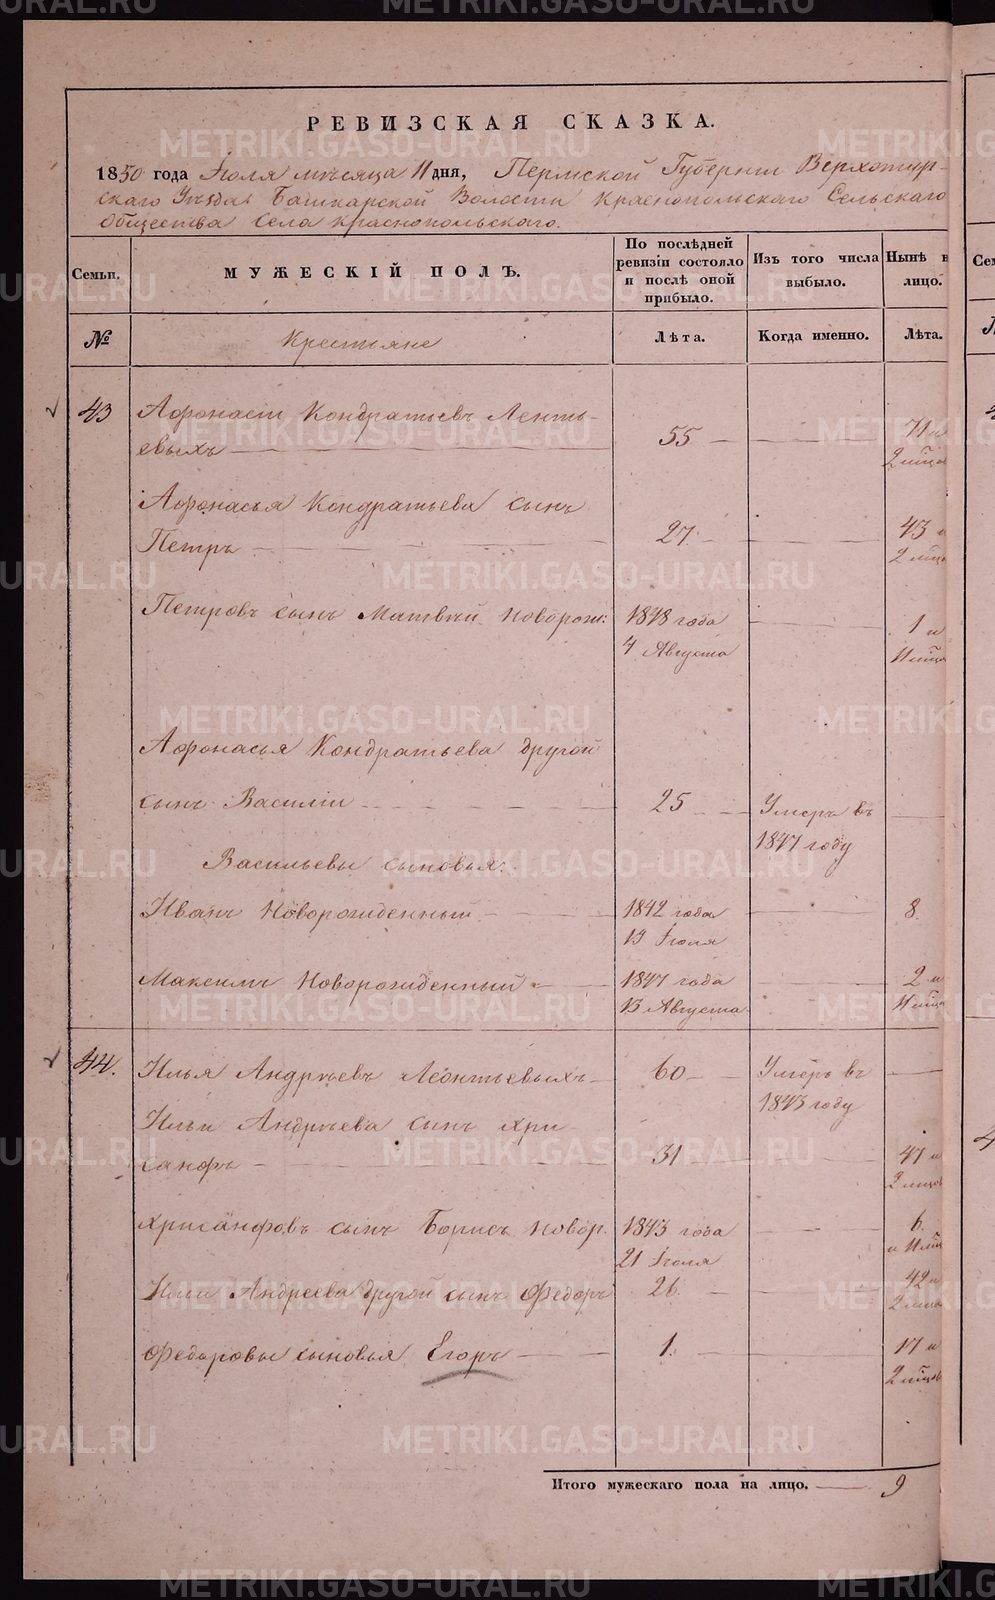 РЕВИЗСКАЯ СКАЗКА.
1850 года Іюля мѣсяца 11 дня, Пермской Губерніи Верхотур-
скаго Уѣзда Башкарской Волости Краснопольскаго Сельскаго
Общества Села Краснопольскаго.
Семьи.
МУЖЕСКІЙ ПОЛЪ.
По послѣдней
ревизіи состояло
и послѣ оной
прибыло.
Изъ того числа
выбыло.
Нынѣ н
лицо.
№
Крестьяне
Лѣта.
Когда именно.
Лѣта.
43
Афонасіи Кондратьевъ Ленть-
евыхъ
55
71 и
2 мѣся
Афонасья Кондратьева сынъ
Петръ
27
43 и
2 мѣся
Петровъ сынъ Матвѣй новорож:
1848 года
4 Августа
1 и
11 мѣся
Афонасья Кондратьева другой
сынъ Василіи
25
Умеръ въ
1847 году
Васильевы сыновья:
Иванъ Новорожденный
1842 года
13 Іюля
8.
Максимъ Новорожденный
1847 года
13 Августа
2 и
11 мѣся
44.
Илья Андрѣевъ Леонтьевыхъ
60
Умеръ въ
1843 году
Ильи Андрѣева сынъ Хри
санфъ
31
47 и
2 мѣсяц
Хрисанфовъ сынъ Борисъ новор.
1843 года
21 Іюля
6.
и 11 мѣ
Ильи Андреева другой сынъ Федоръ
26.
42 и
2 мѣся
Федоровы сыновья Егоръ
1.
17 и
2 мѣсяц
Итого мужескаго пола на лицо.
9
METRIKI.GASO-URAL.RU